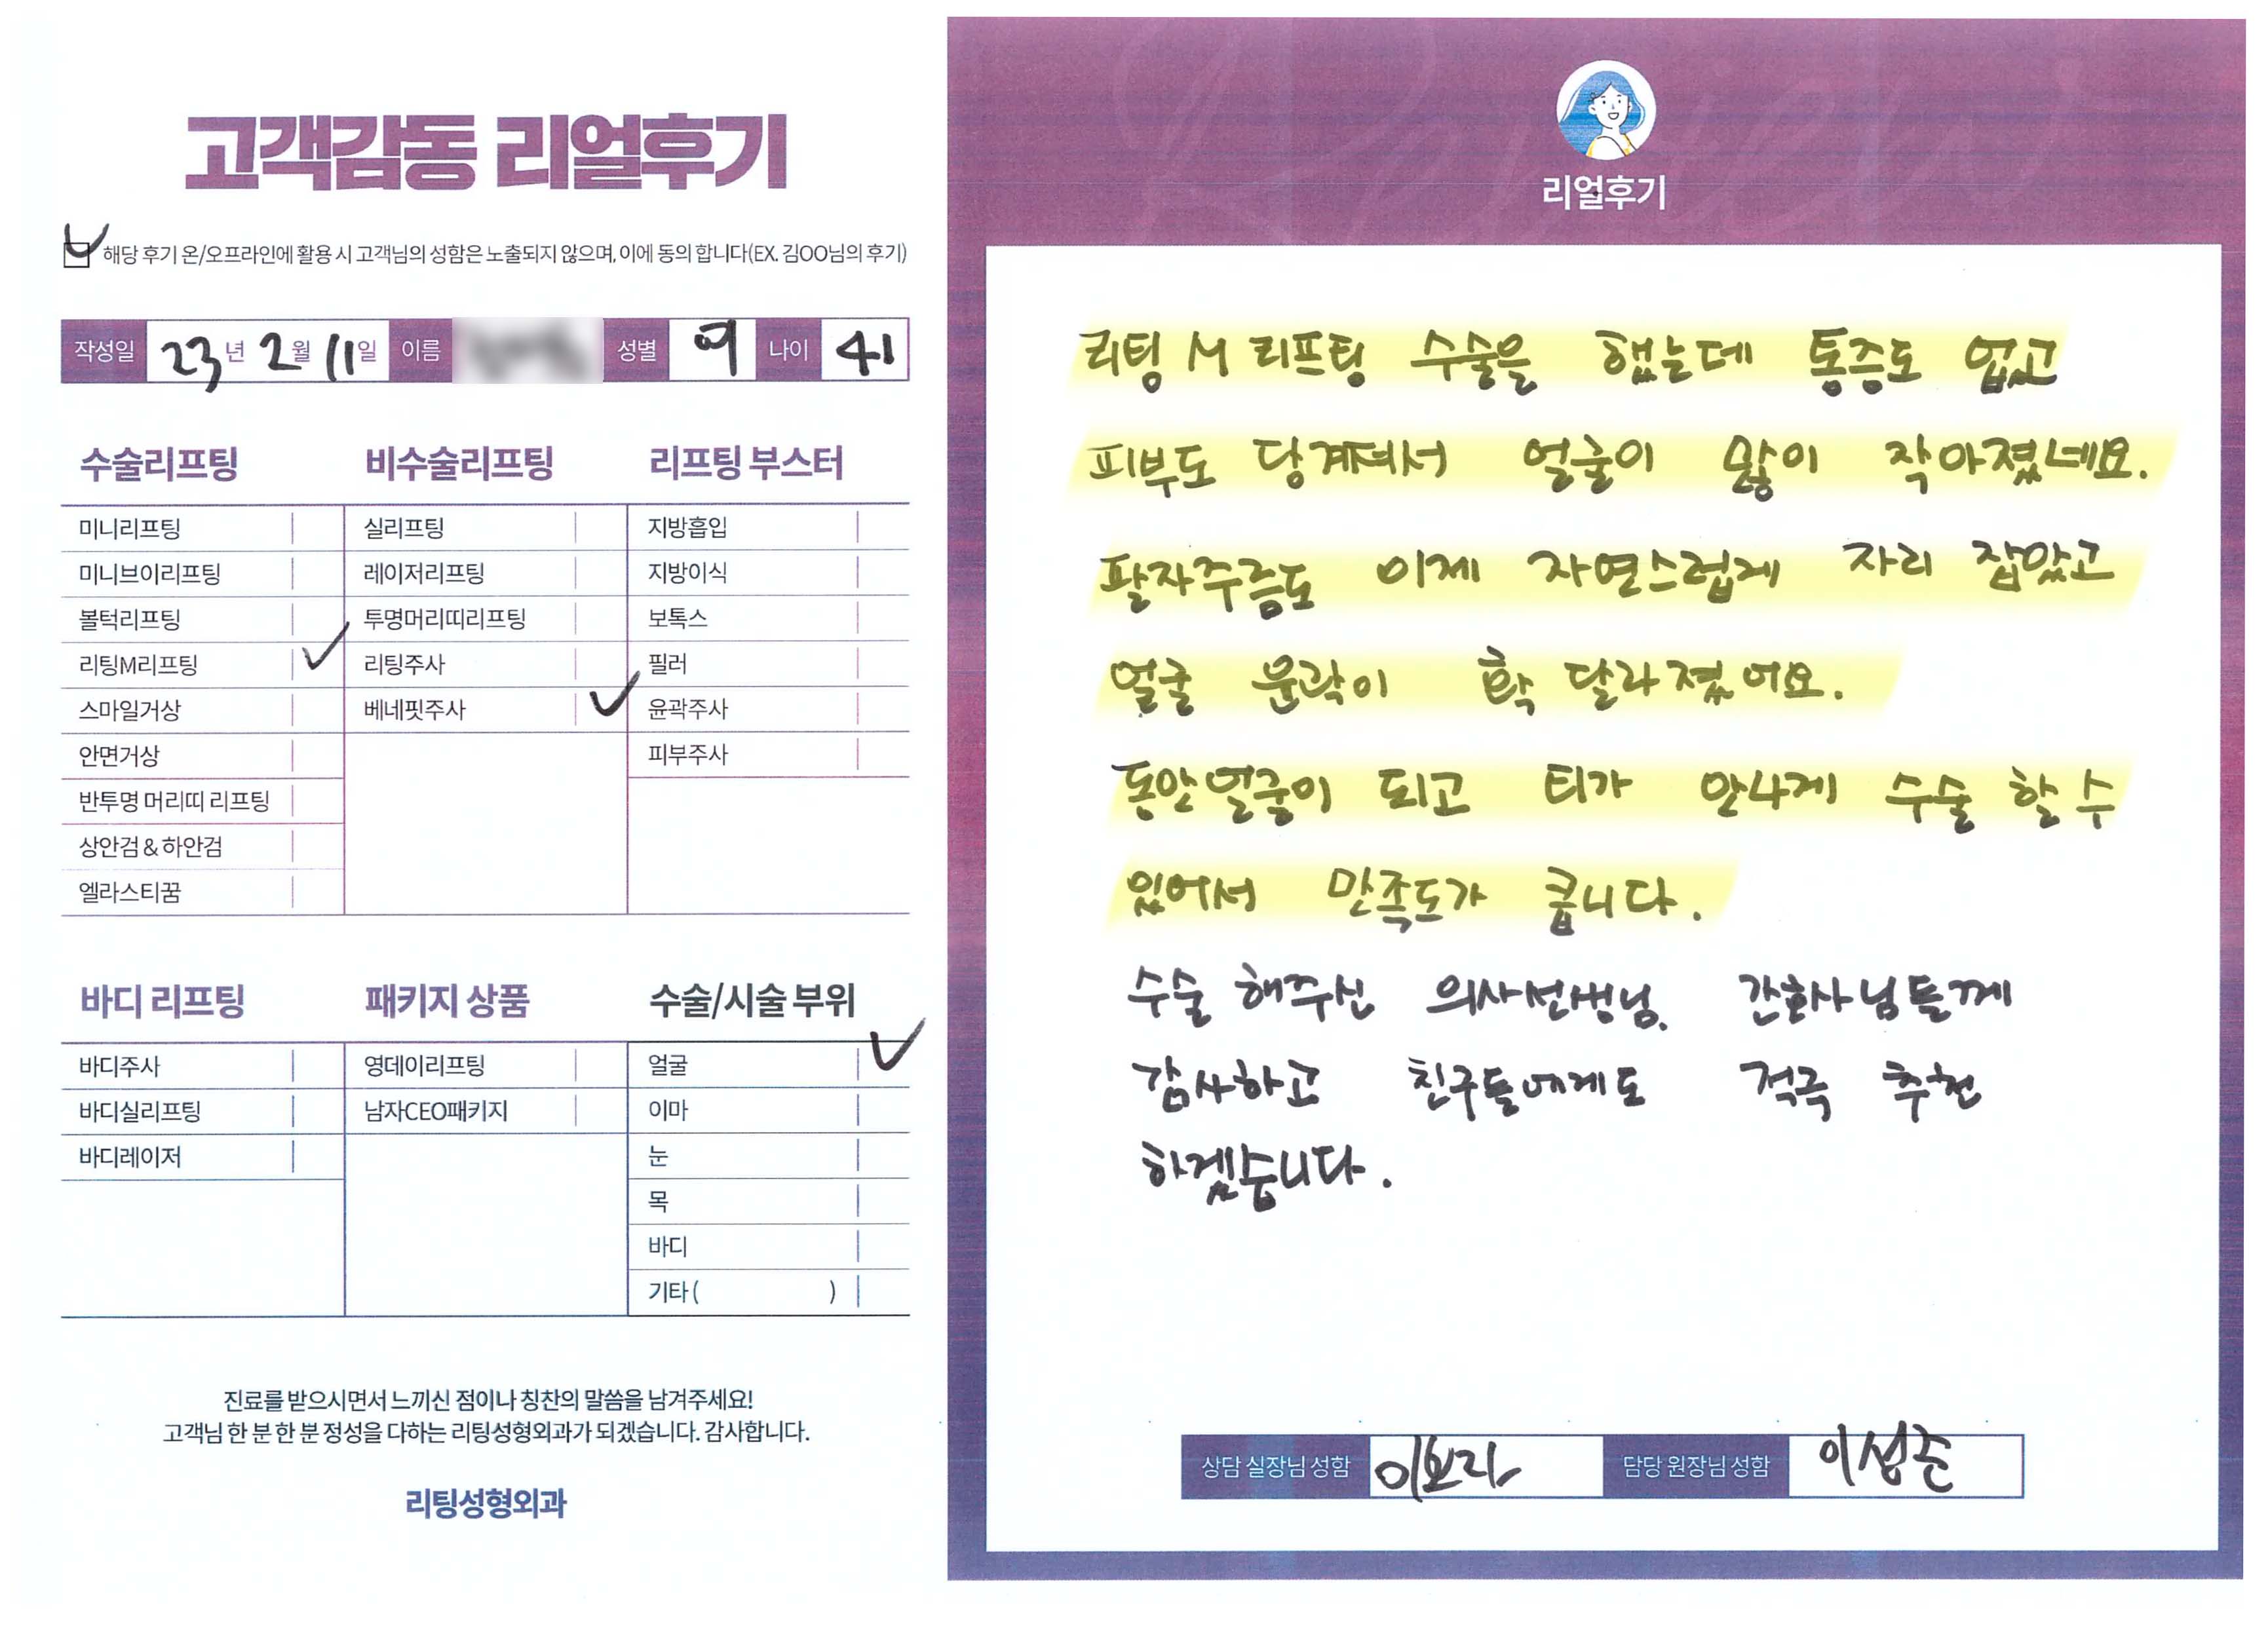 고객감동 리얼후기
해당 후기 온/오프라인에 활용 시 고객님의 성함은 노출되지 않으며, 이에 동의 합니다(EX. 김OO님의 후기)
작성일 23년 2월 11일 이름 성별 여 나이 41
수술리프팅
미니리프팅
미니브이리프팅
볼턱리프팅
리팅M리프팅
스마일거상
안면거상
반투명 머리띠 리프팅
상안검 & 하안검
엘라스티꿈
비수술리프팅
실리프팅
레이저리프팅
투명머리띠리프팅
리팅주사
베네핏주사
리프팅 부스터
지방흡입
지방이식
보톡스
필러
윤곽주사
피부주사
바디 리프팅
바디주사
바디실리프팅
바디레이저
패키지 상품
영데이리프팅
남자CEO패키지
수술/시술 부위
얼굴
이마
눈
목
바디
기타 ( )
진료를 받으시면서 느끼신 점이나 칭찬의 말씀을 남겨주세요!
고객님 한 분 한 분 정성을 다하는 리팅성형외과가 되겠습니다. 감사합니다.
리팅성형외과
리얼후기
리팅 M 리프팅 수술을 했는데 통증도 없고
피부도 당겨져서 얼굴이 많이 작아졌네요.
팔자주름도 이제 자연스럽게 자리 잡았고
얼굴 윤곽이 확 달라졌어요.
동안얼굴이 되고 티가 안나게 수술 할 수
있어서 만족도가 큽니다.
수술 해주신 의사선생님, 간호사님들께
감사하고 친구들에게도 적극 추천
하겠습니다.
상담 실장님 성함 이보라 담당 원장님 성함